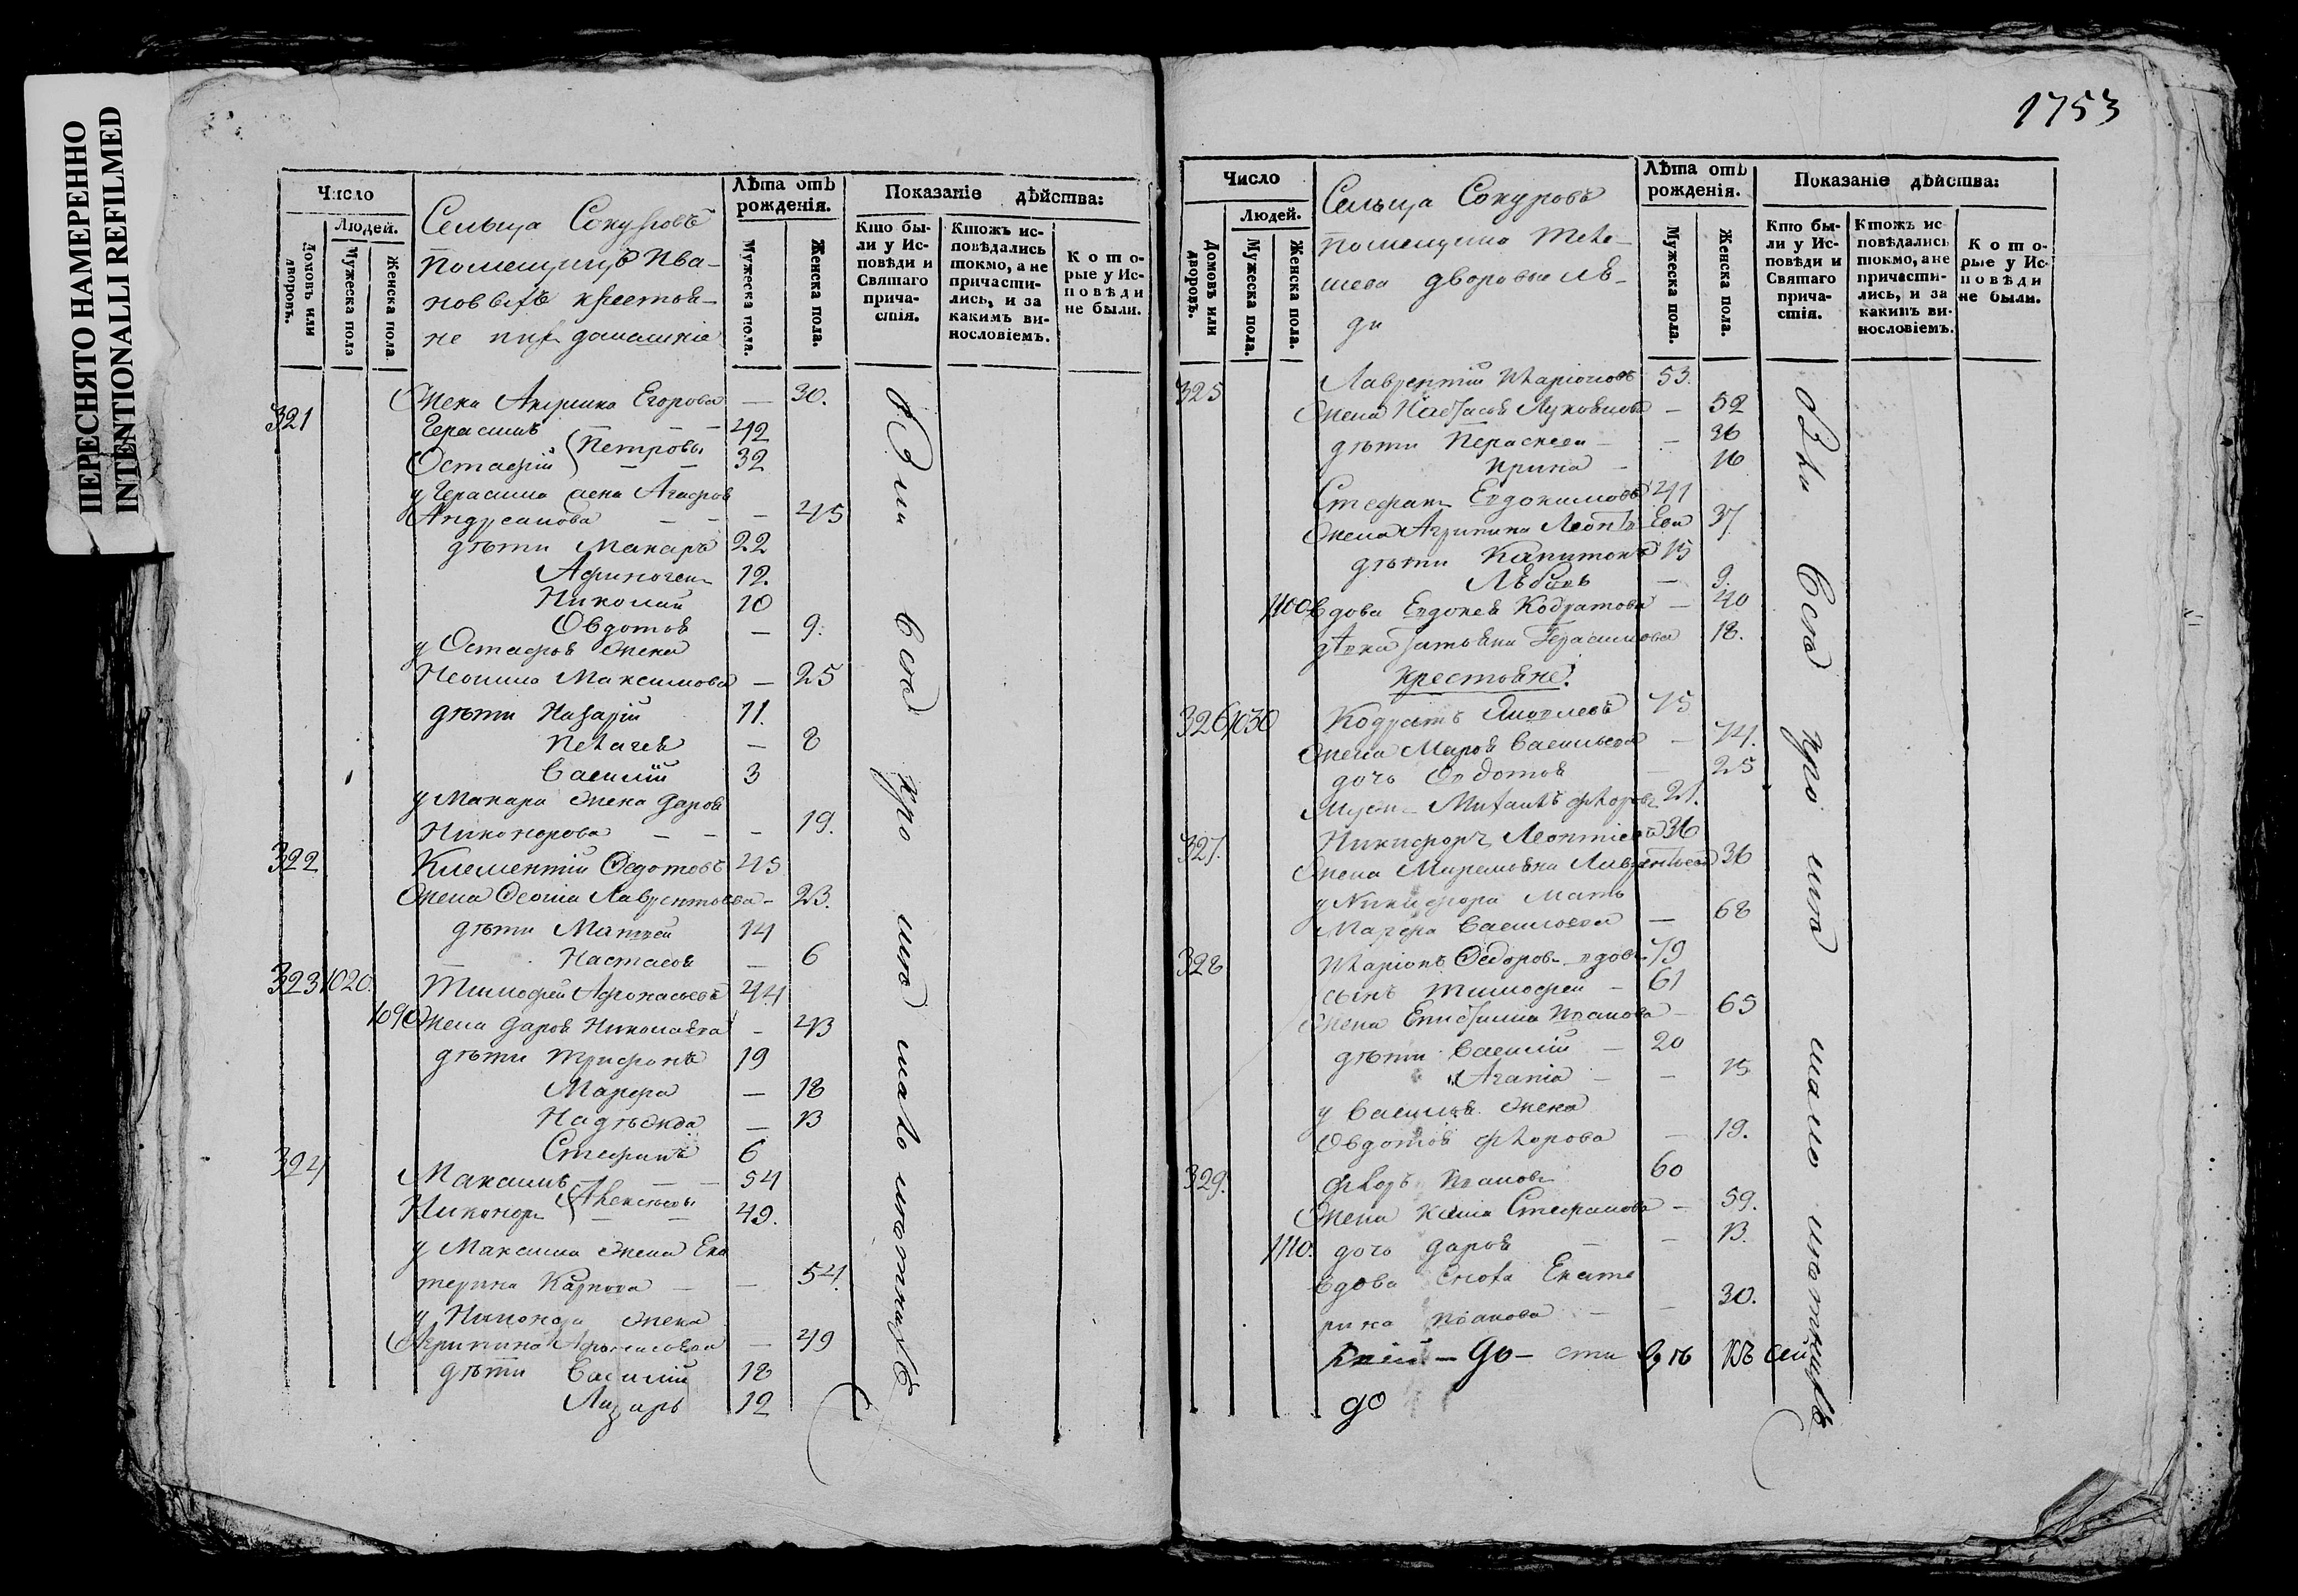 ПЕРЕСНЯТО НАМЕРЕННО
INTENTIONALLI REFILMED
Число
Людей.
Домовъ или дворовъ.
Мужеска пола
Женска пола.
Сельца Сокуровъ
помещицъ Ива-
новыхъ крестья-
не и их домашніе
Лѣта отъ рожденія.
Мужеска пола.
Женска пола.
Показаніе дѣйства:
Кто бы-
ли у Ис-
повѣди и
Святаго
прича-
стія.
Ктожъ ис-
повѣдались
токмо, а не
причасти-
лись, и за
какимъ ви-
нословіемъ.
К о т о-
рые у Ис-
п о в ѣ д и
не были.
Жена Акулина Егорова — 30.
321 Герасимъ — — 42
Остафій Петровы — — 32
у Герасима жена Агафья
Андреанова — — — 45
дѣти Макаръ 22
Афиноген 12.
Николай 10
Овдотья — 9.
у Остафья жена
Неонила Максимова — 25
дѣти Назарій 11.
Пелагея — 8
Василій 3
у Макара жена Дарья
Никонорова — — — 19.
322 Клементій Федотовъ 45
Жена Феоня Лаврентьева — 23.
дѣти Матвей 14
Настасья — 6
323 1020. Тимофей Афонасьевъ 44
1090 Жена Дарья Николаева — 43
дѣти Трифонъ 19
Марфа — 18
Надѣжда — 13
Стефанъ 6
324 Максимъ — — 54
Никонор Алексеевы — — 49.
у Максима жена Ека
терина Карпова — — 54.
у Никонора жена
Агрипина Афонасьева — 49
дѣти Василій 18
Лазарь 12
были
вси
при
1753
Число
Людей.
Домовъ или дворовъ.
Мужеска пола.
Женска пола.
Сельца Сокуровъ
помещика Теле-
шева дворовые лю-
ди
Лѣта отъ рожденія.
Мужеска пола.
Женска пола.
Показаніе дѣйства:
Кто бы-
ли у Ис-
повѣди и
Святаго
прича-
стія.
Ктожъ ис-
повѣдались
токмо, а не
причасти-
лись, и за
какимъ ви-
нословіемъ.
К о т о-
рые у Ис-
п о в ѣ д и
не были.
325 Лаврентій Иларіоновъ 53.
Жена Настасья Луковнова — 52
дѣти Пераскева — — 26
Ирина — 16
Стефан Евдокимовъ 41
Жена Агрипина Леонтьева 37
дѣти Капитонъ 15
Любовь — 9.
1100. вдова Евдокея Кодратова — 40
дѣвка Татьяна Герасимова 18.
Крестьяне.
326 1030 Кодратъ Яковлевъ 75
Жена Марья Васильева — 74.
дочь Овдотья — 25
Михаилъ Флоров 21.
327. Никифоръ Леонтьевъ 36
Жена Миремьяна Лаврентьева 36
у Никифора мать
Марфа Васильева — 68
328 Иларіонъ Федоров вдов 79
сынъ Тимофей — 61
Жена Епистимия Иванова — 65
дѣти Василій — 20
Агапіа — — 15
у Василья жена
Овдотья Флорова — 19.
329. Флоръ Иванов 60
Жена Ксенія Стефанова — 59.
1110. дочь Дарья — — 13.
вдова сноха Екате
рина Иванова — — 30.
до
были
вси
при